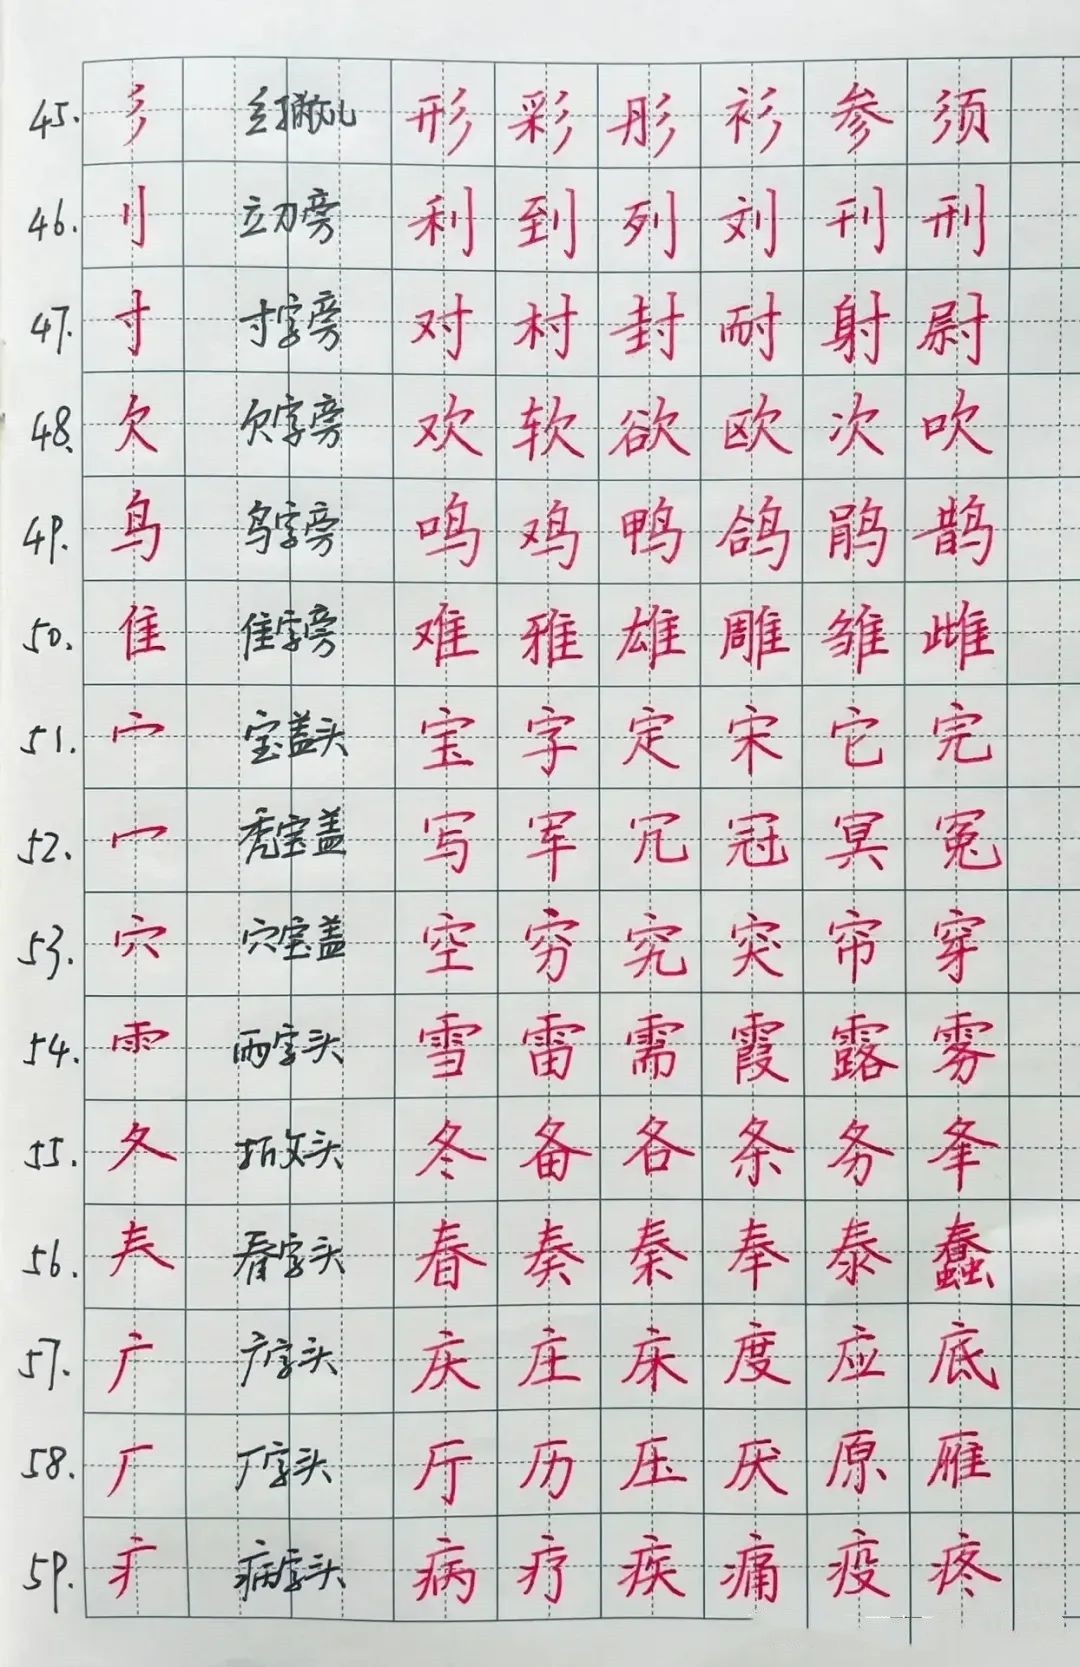 45. 彡 三撇儿 形 彩 彤 衫 参 须
46. 刂 立刀旁 利 到 列 刘 刊 刑
47. 寸 寸字旁 对 村 封 耐 射 尉
48. 欠 欠字旁 欢 软 欲 欧 次 吹
49. 鸟 鸟字旁 鸣 鸡 鸭 鸽 鹃 鹊
50. 隹 隹字旁 难 雅 雄 雕 雏 雌
51. 宀 宝盖头 宝 字 定 宋 它 完
52. 冖 秃宝盖 写 军 冗 冠 冥 冤
53. 穴 穴宝盖 空 穷 究 突 帘 穿
54. ⻗ 雨字头 雪 雷 需 霞 露 雾
55. 夂 折文头 冬 备 各 条 务 夆
56. 𡗗 春字头 春 奏 秦 奉 泰 蠢
57. 广 广字头 庆 庄 床 度 应 底
58. 厂 厂字头 厅 历 压 厌 原 雁
59. 疒 病字头 病 疗 疾 痛 疫 疼